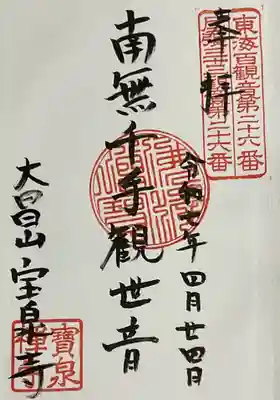 東海百観音第二十六番
第二十六番
奉拝
令和七年四月廿四日
南無千手観世音
大昌山宝泉寺
寶泉
禪